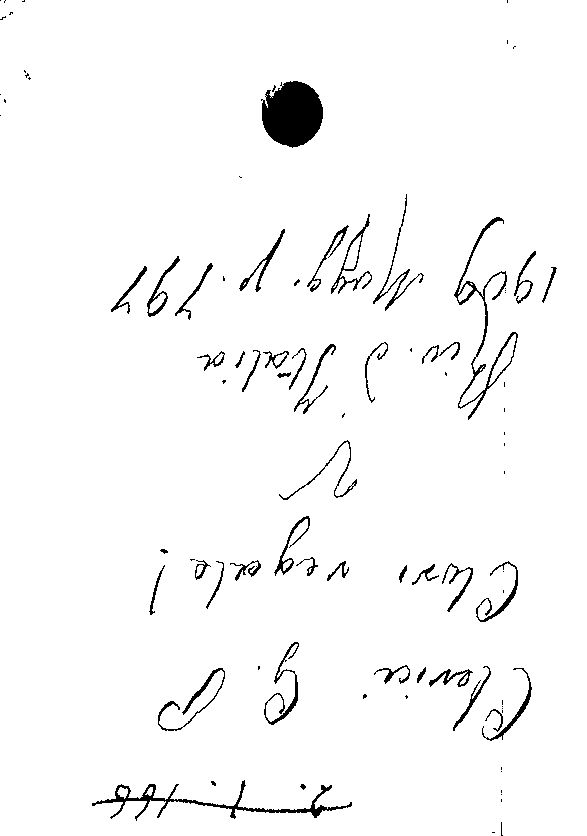 2. 1. 166
Clerici G. P
Clavi regala!
Riv. d'Italia
1909 Magg. p. 797